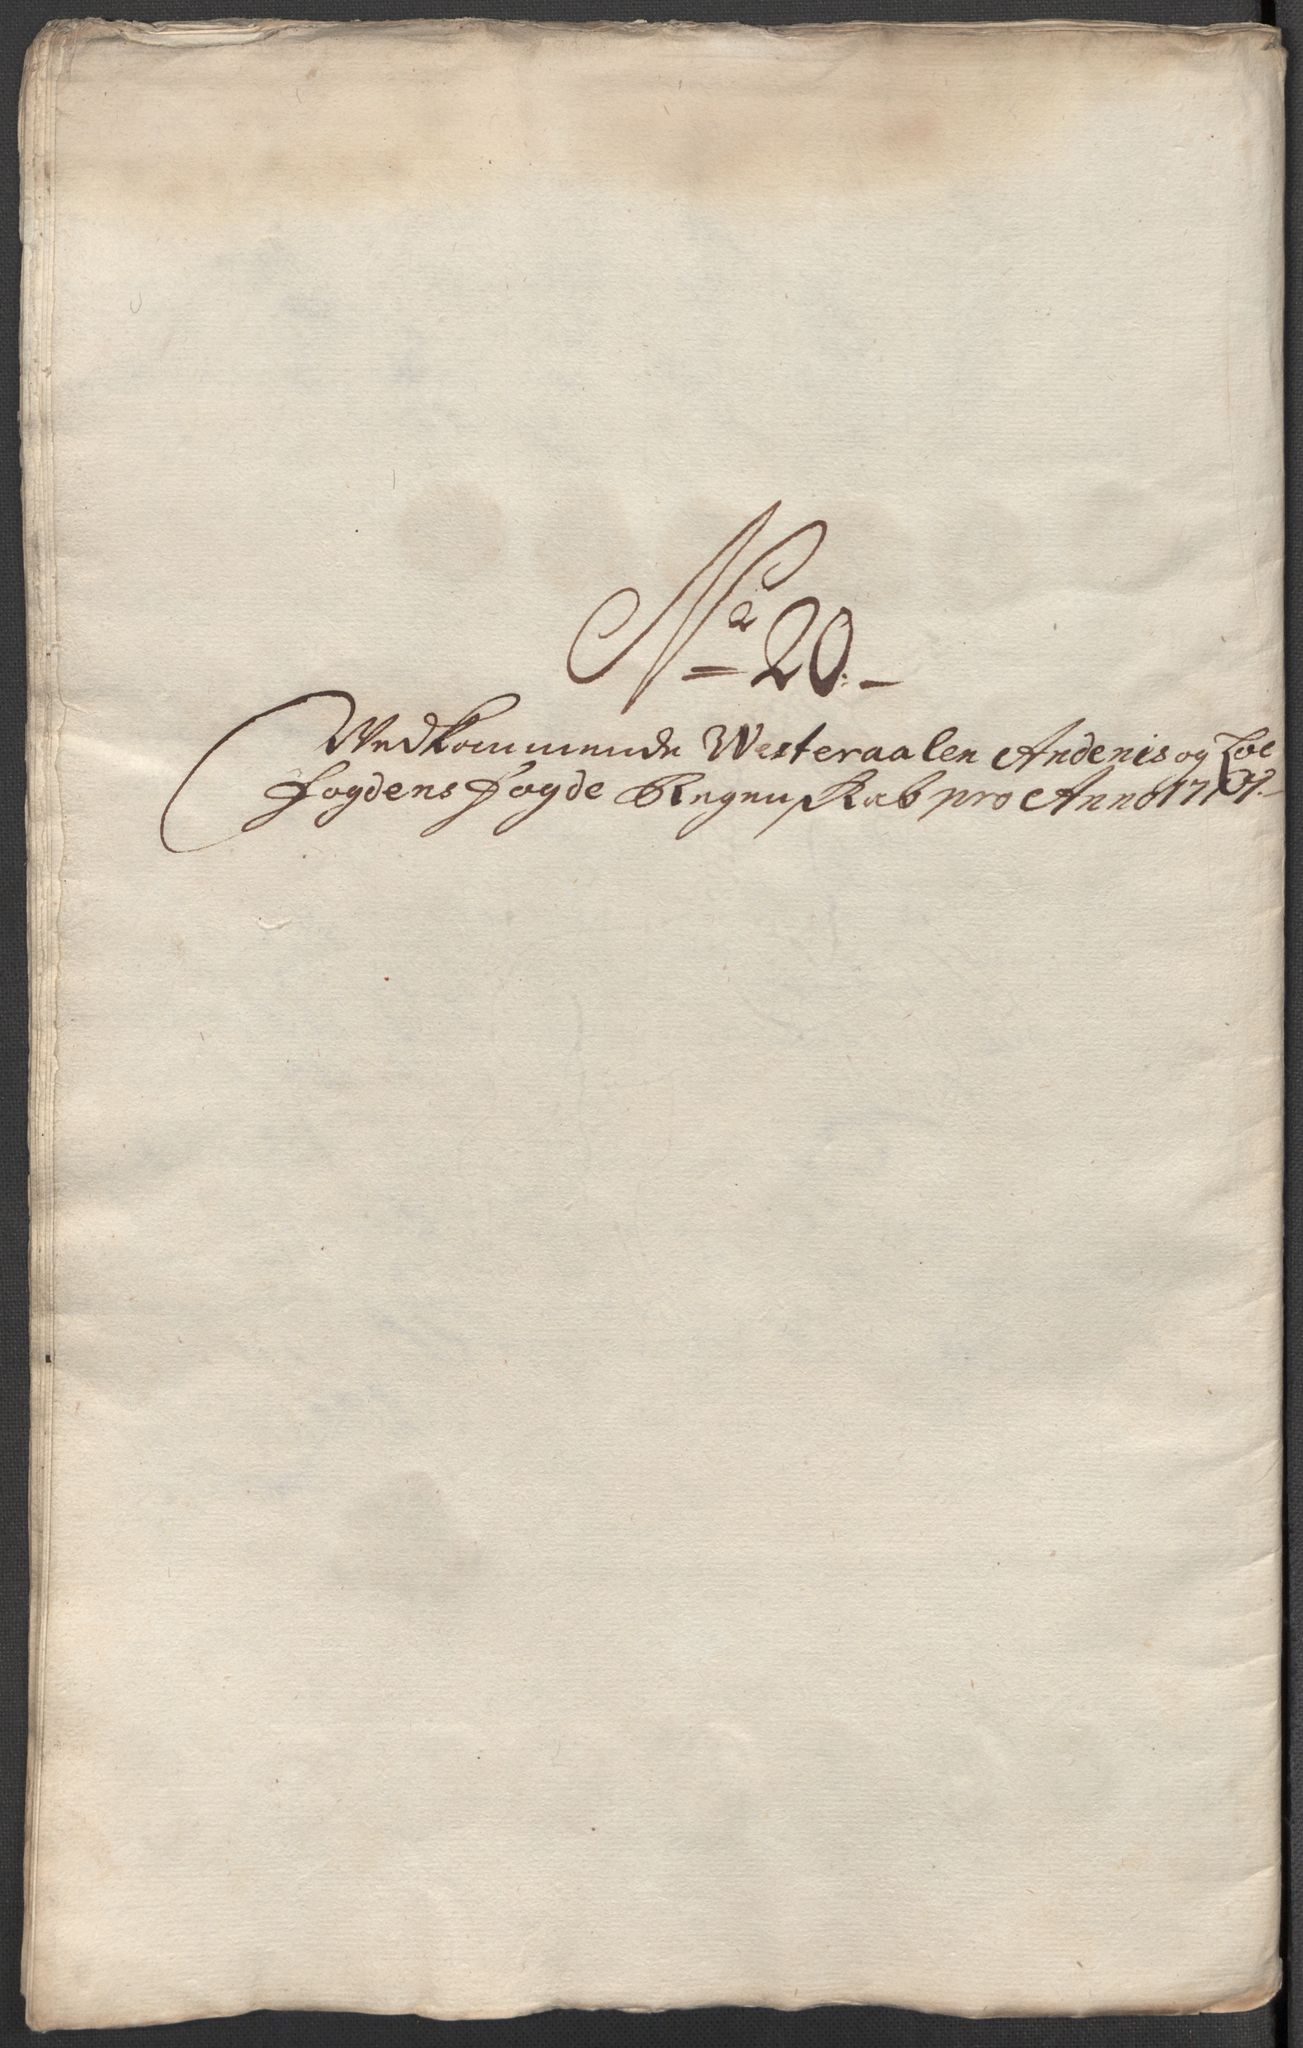 No 20.
Vedkommende Westeraalen Andenis og Lof
fogdens fogde Regnskab pro Anno